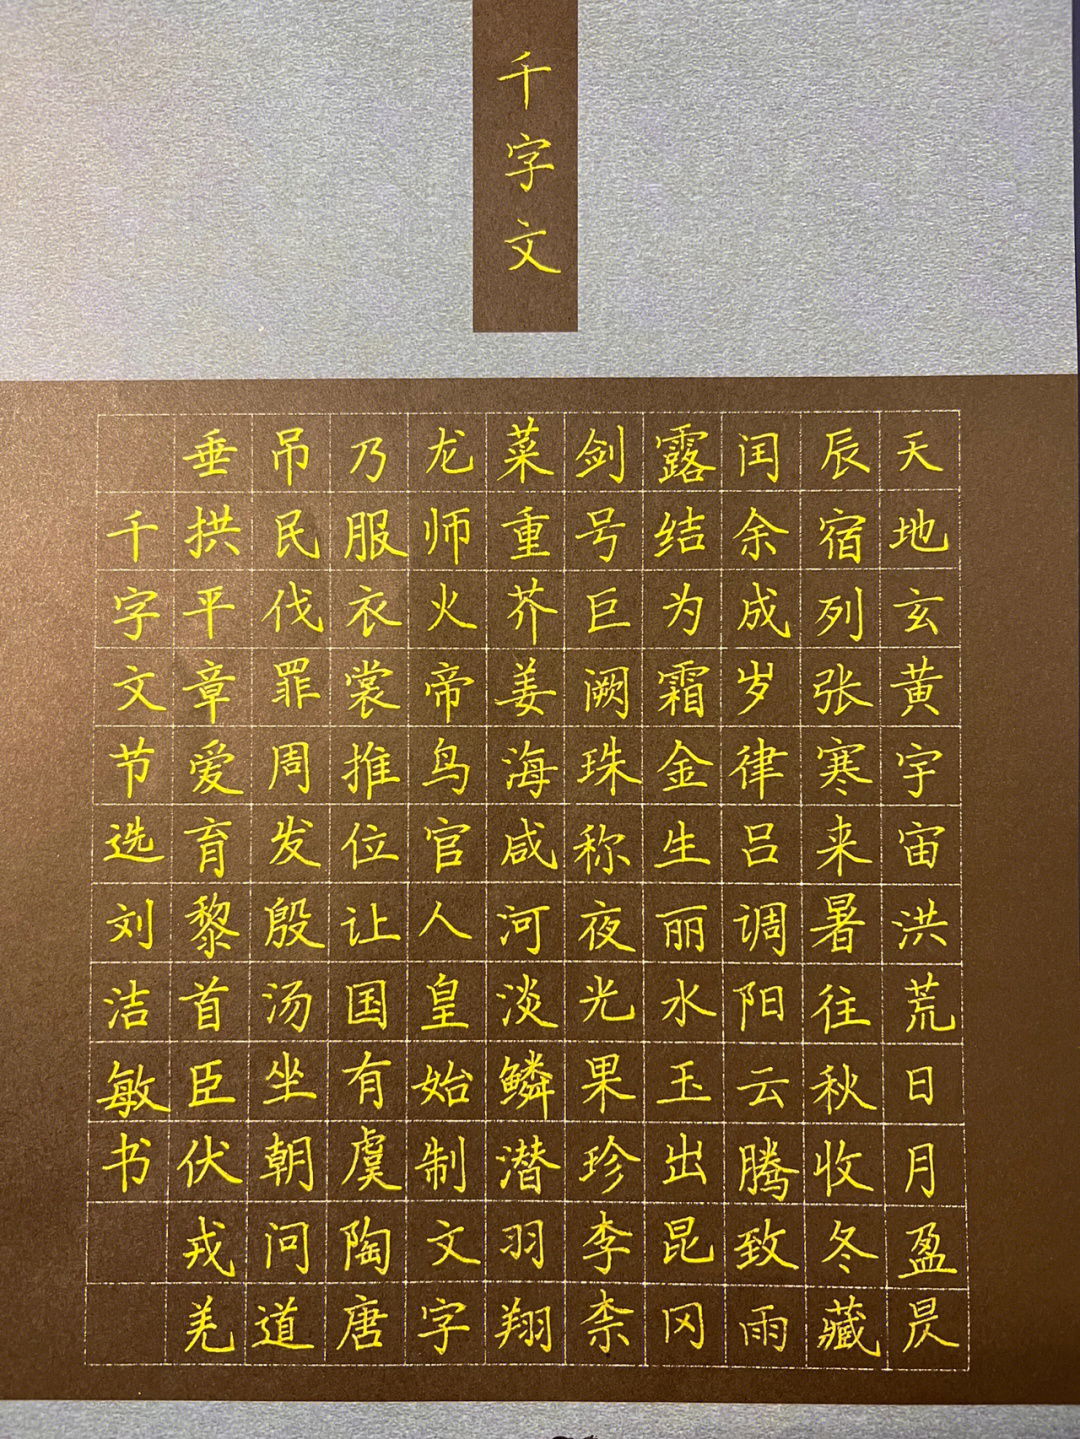 千字文
天地玄黄宇宙洪荒日月盈昃
辰宿列张寒来暑往秋收冬藏
闰余成岁律吕调阳云腾致雨
露结为霜金生丽水玉出昆冈
剑号巨阙珠称夜光果珍李柰
菜重芥姜海咸河淡鳞潜羽翔
龙师火帝鸟官人皇始制文字
乃服衣裳推位让国有虞陶唐
吊民伐罪周发殷汤坐朝问道
垂拱平章爱育黎首臣伏戎羌
千字文节选刘洁敏书